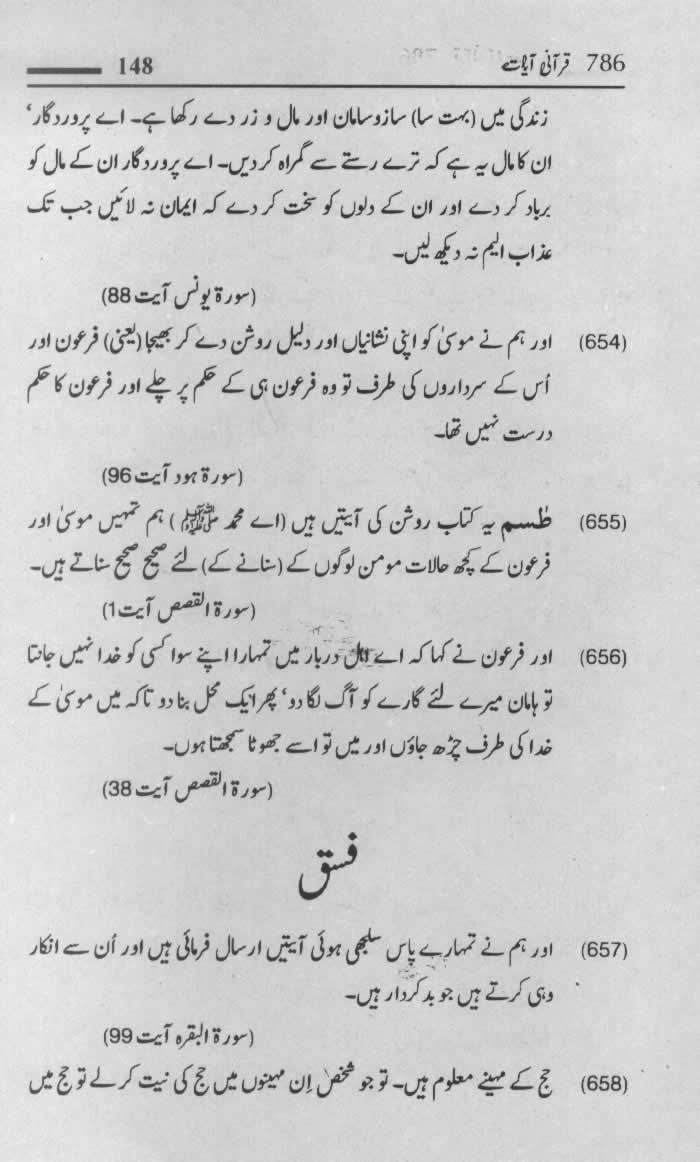 786 قرآنی آیات 148
زندگی میں (بہت سا) سازوسامان اور مال و زر دے رکھا ہے۔ اے پروردگار‘
ان کا مال یہ ہے کہ ترے رستے سے گمراہ کر دیں۔ اے پروردگار ان کے مال کو
برباد کر دے اور ان کے دلوں کو سخت کر دے کہ ایمان نہ لائیں جب تک
عذاب الیم نہ دیکھ لیں۔
(سورۃ یونس آیت 88)
(654) اور ہم نے موسیٰ کو اپنی نشانیاں اور دلیل روشن دے کر بھیجا (یعنی) فرعون اور
اُس کے سرداروں کی طرف تو وہ فرعون ہی کے حکم پر چلے اور فرعون کا حکم
درست نہیں تھا۔
(سورۃ ہود آیت 96)
(655) طٰسم یہ کتاب روشن کی آیتیں ہیں (اے محمد ﷺ) ہم تمہیں موسیٰ اور
فرعون کے کچھ حالات مومن لوگوں کے (سنانے کے) لئے صحیح صحیح سناتے ہیں۔
(سورۃ القصص آیت 1)
(656) اور فرعون نے کہا کہ اے اہل دربار میں تمہارا اپنے سوا کسی کو خدا نہیں جانتا
تو ہامان میرے لئے گارے کو آگ لگا دو‘ پھر ایک محل بنا دو تاکہ میں موسیٰ کے
خدا کی طرف چڑھ جاؤں اور میں تو اسے جھوٹا سمجھتا ہوں۔
(سورۃ القصص آیت 38)
فسق
(657) اور ہم نے تمہارے پاس سلجھی ہوئی آیتیں ارسال فرمائی ہیں اور اُن سے انکار
وہی کرتے ہیں جو بدکردار ہیں۔
(سورۃ البقرہ آیت 99)
(658) حج کے مہینے معلوم ہیں۔ تو جو شخص اِن مہینوں میں حج کی نیت کر لے تو حج میں